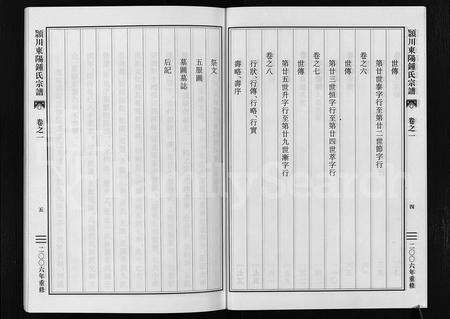 潁川東陽鍾氏宗譜
卷之一
四
二〇〇六年重修
世傳
第廿世泰字行至第廿二世節字行
卷之六
世傳
第廿三世恒字行至第廿四世萃字行
卷之七
世傳
第廿五世升字行至第廿九世漸字行
卷之八
行狀、行傳、行略、行實
壽略、壽序
祭文
五服圖
墓圖墓誌
后記
潁川東陽鍾氏宗譜
卷之一
五
二〇〇六年重修
FamilySearch